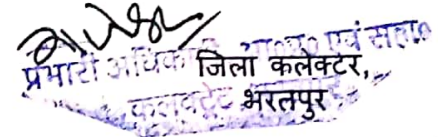 प्रभारी अधिकारी एवं सहा०
जिला कलेक्टर,
कलक्ट्रेट भरतपुर